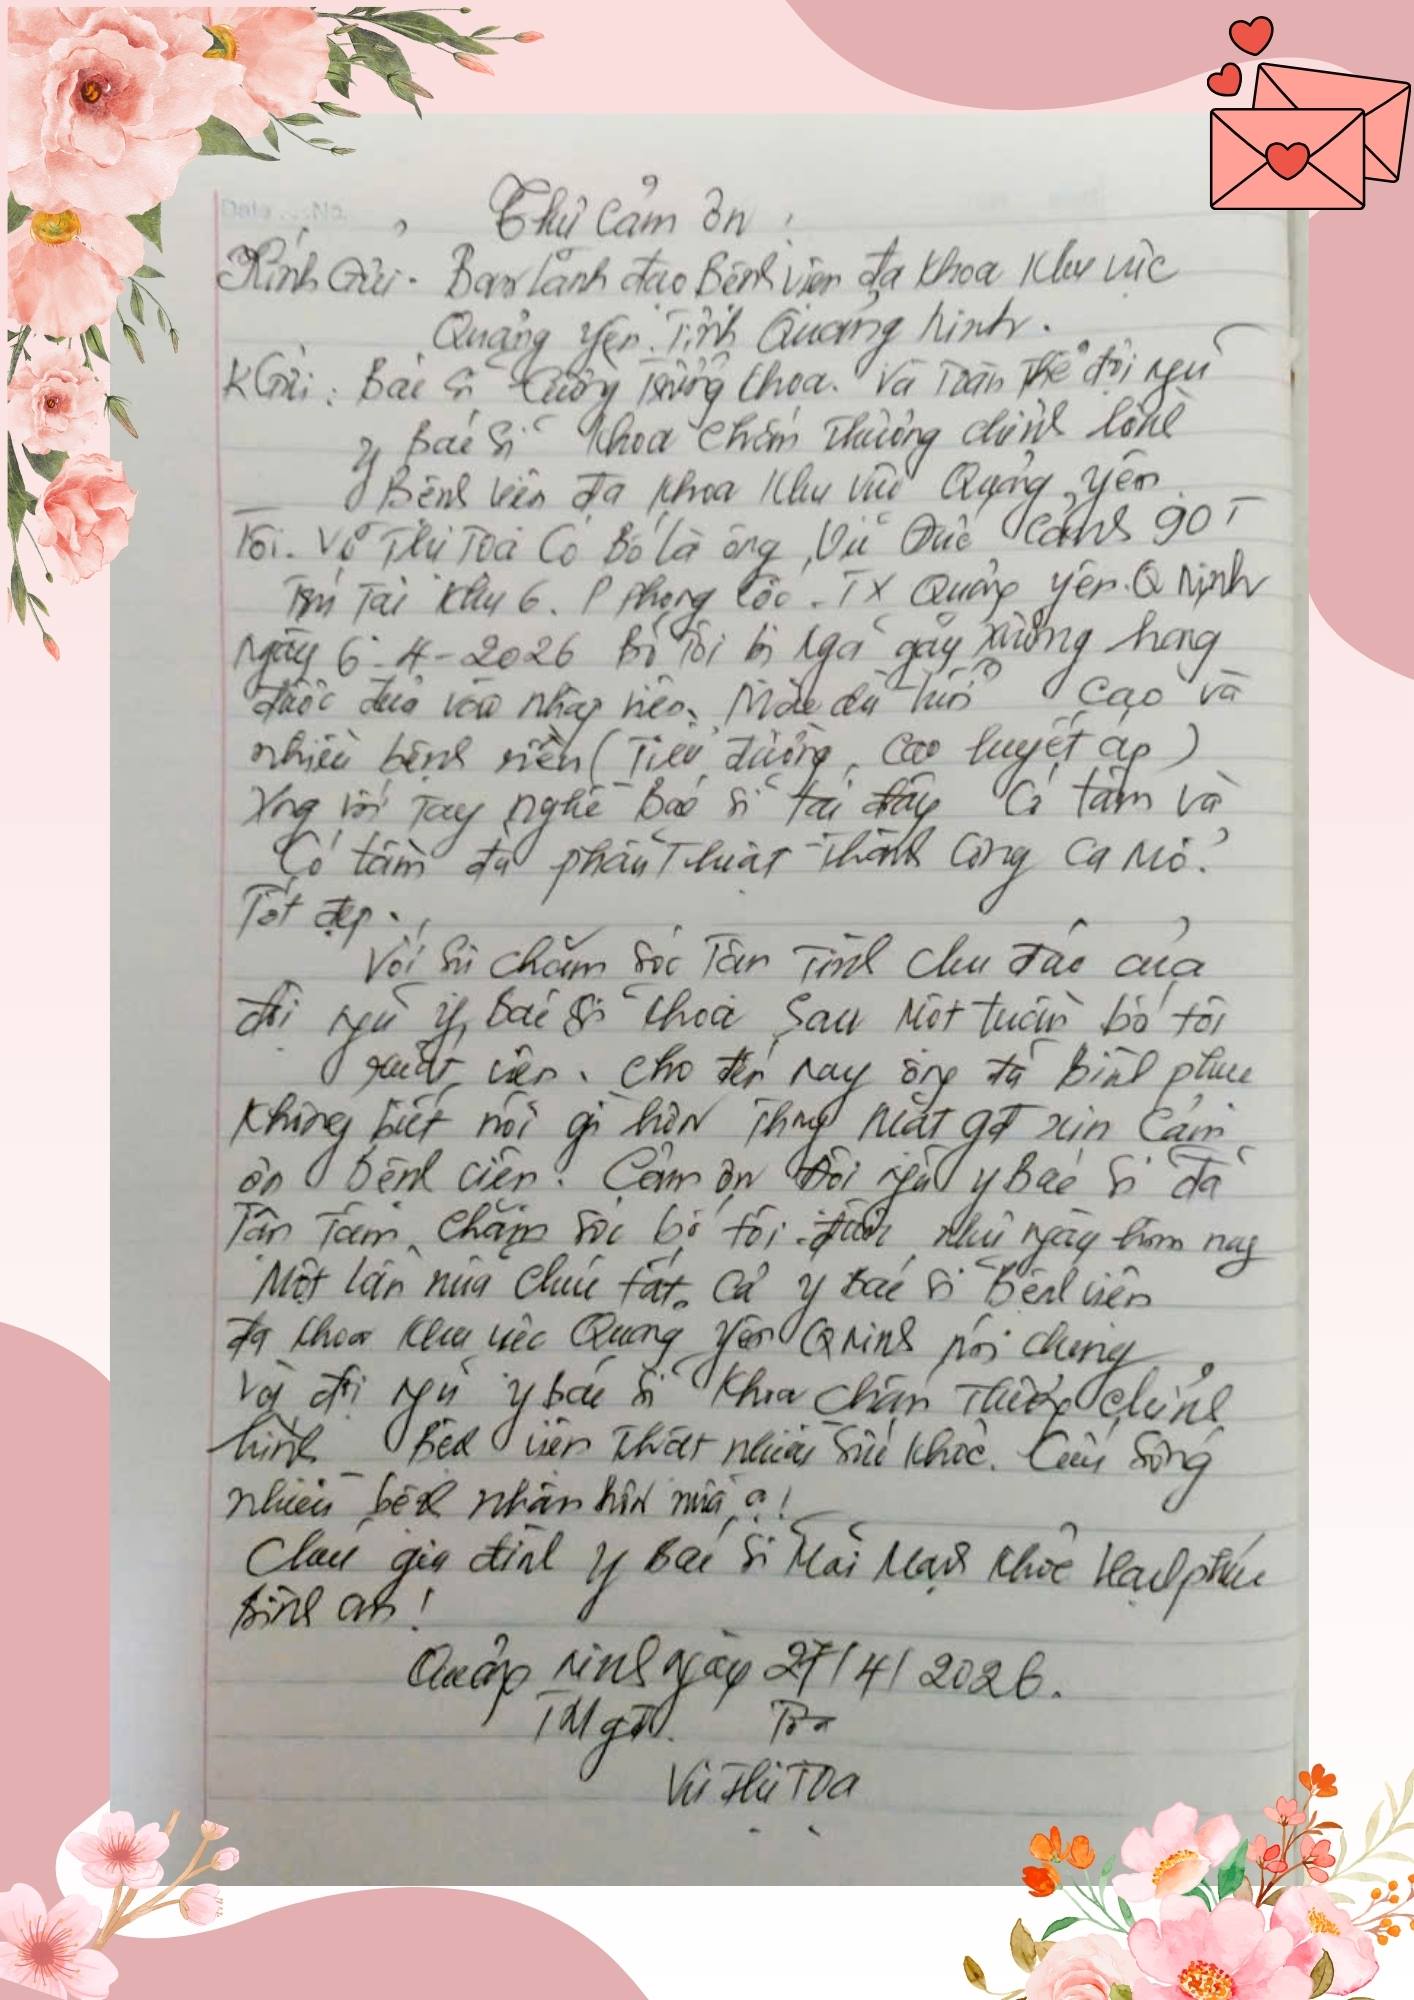 Thư cảm ơn
Kính Gửi. Ban lãnh đạo Bệnh viện đa khoa khu vực
Quảng Yên. Tỉnh Quảng Ninh.
K Gửi: Bác sĩ Cường Trưởng khoa. và Toàn thể đội ngũ
y Bác sĩ khoa chấn thương chỉnh hình
Bệnh viện đa khoa khu vực Quảng Yên
Tôi. Vũ Thị Toa Có Bố là ông Vũ Đức Cảnh 90T
Trú Tại Khu 6. P Phong Cốc. TX Quảng Yên. Q Ninh
Ngày 6-4-2026 Bố Tôi bị Ngã gãy xương hông
được đưa vào nhập viện. Mặc dù tuổi cao và
nhiều bệnh nền (Tiểu đường, cao huyết áp)
Xng với Tay nghề Bác sĩ tại đây Có tâm và
Có tầm đã phẫu Thuật Thành Công Ca Mổ.
Tốt đẹp.
Với sự chăm sóc Tận Tình chu đáo của
đội ngũ y, bác sĩ khoa sau Một tuần bố tôi
xuất viện. Cho đến nay ông đã Bình phục
Không biết nói gì hơn Thay Mặt gđ xin cảm
ơn Bệnh viện. Cảm ơn đội ngũ y Bác sĩ đã
Tận Tâm chăm sóc bố tôi được như ngày hôm nay
Một lần nữa Chúc tất cả y Bác sĩ Bệnh viện
đa khoa khu vực Quảng Yên Q Ninh nói chung
Và đội ngũ y bác sĩ Khoa Chấn Thương chỉnh
hình Bệnh viện Thật nhiều sức khỏe. Cứu sống
nhiều bệnh nhân hơn nữa ạ!
Chúc gia đình y Bác sĩ Mãi Mạnh khỏe Hạnh phúc
Bình an!
Quảng Ninh ngày 27/4/2026.
TM gđ. Toa
Vũ Thị Toa